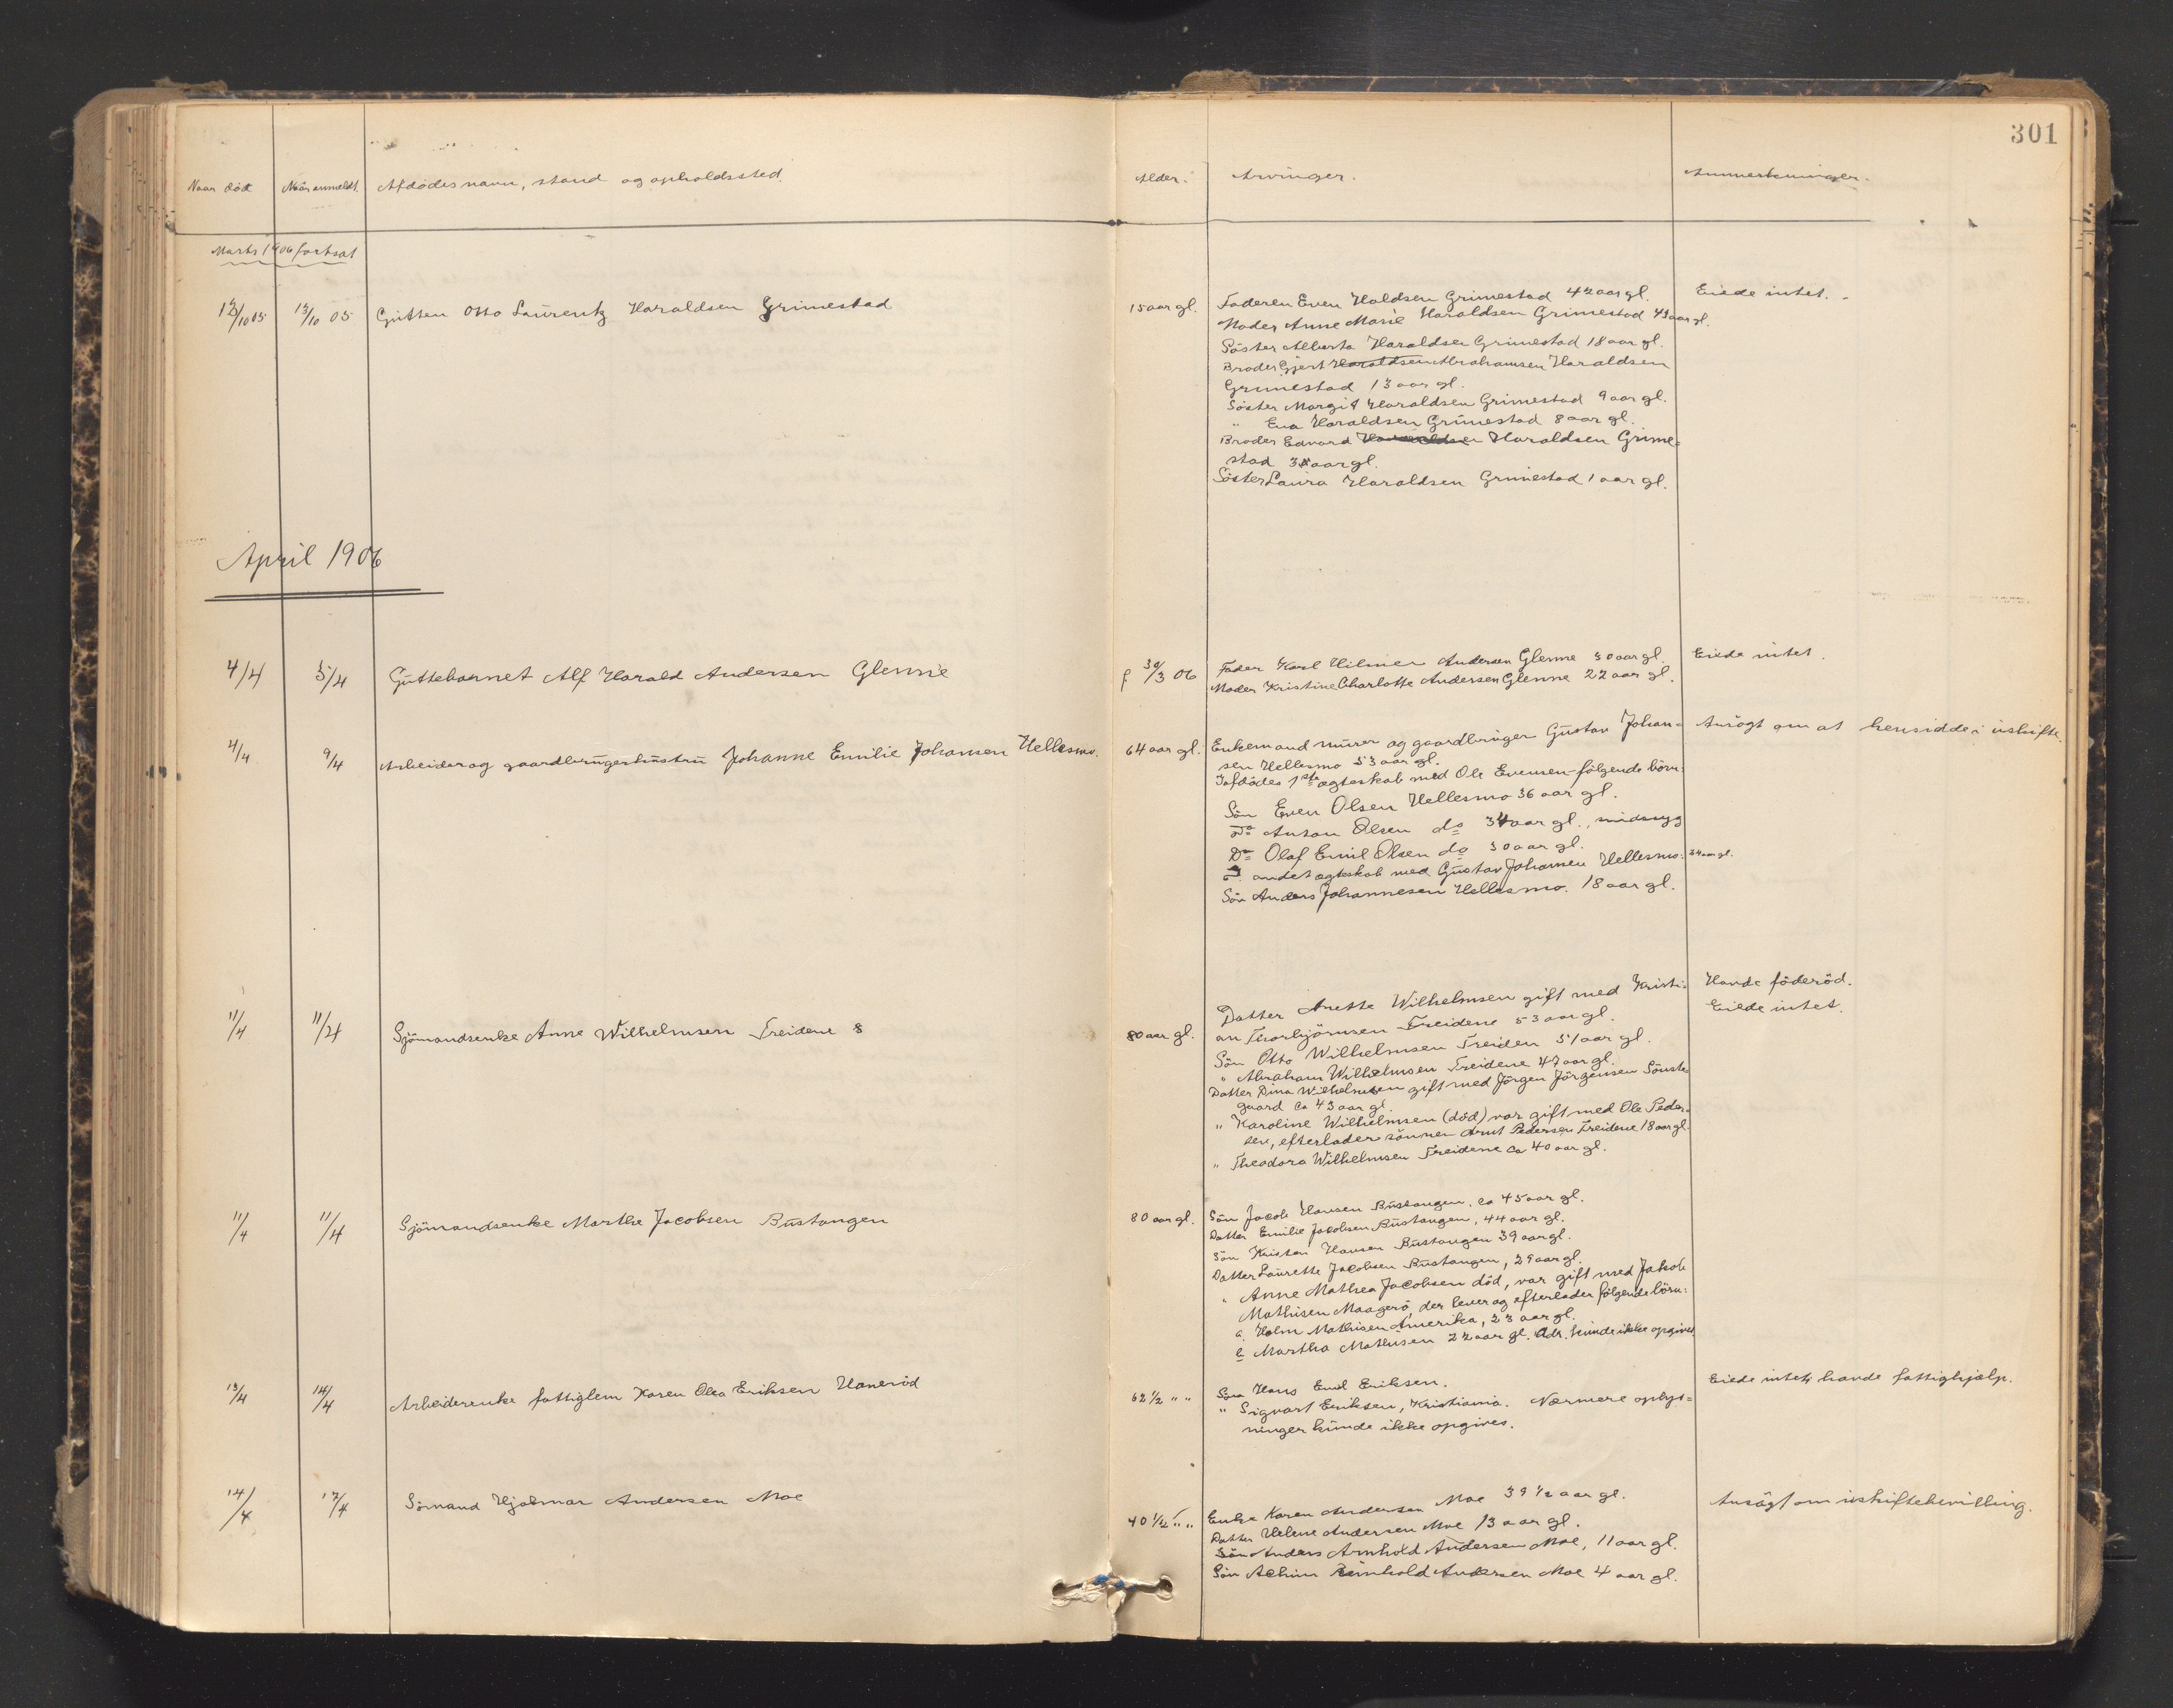 301
Naar död Naar anmeldt. Afdödes navn, stand og opholdssted. Alder. Arvinger. Anmerkninger.
Marts 1906 fortsat
12/10 05 13/10 05 Gutten Otto Laurentz Haraldsen Grimestad 15 aar gl. Faderen Even Haldsen Grimestad 42 aar gl. Eiede intet. -
Moder Anne Marie Haraldsen Grimestad 43 aar gl.
Söster Alberta Haraldsen Grimestad 18 aar gl.
Broder Gjert Haraldsen Abrahamsen Haraldsen
Grimestad 13 aar gl.
Söster Margit Haraldsen Grimestad 9 aar gl.
" Eva Haraldsen Grimestad 8 aar gl.
Broder Edvard Haraldsen Grime=
stad 3 aar gl.
Söster Laura Haraldsen Grimestad 1 aar gl.
April 1906
4/4 5/4 Guttebarnet Alf Harald Andersen Glenne f 30/3 06 Fader Karl Hilmer Andersen Glenne 30 aar gl. Eiede intet.
Moder Kristine Charlotte Andersen Glenne 22 aar gl.
4/4 9/4 Arbeider og gaardbrugerhustru Johanne Emilie Johansen Hellesmo. 64 aar gl. Enkemand murer og gaardbruger Gustav Johan= Ansögt om at hensidde i uskifte.
sen Hellesmo 53 aar gl.
I afdödes 1ste ægteskab med Ole Evensen fölgende börn:
Sön Even Olsen Hellesmo 36 aar gl.
Do Anton Olsen do 34 aar gl., sindssyg
Do Olaf Emil Olsen do 30 aar gl.
I andet ægteskab med Gustav Johansen Hellesmo: 34 aar gl.
Sön Anders Johannesen Hellesmo. 18 aar gl.
11/4 11/4 Sjömandsenke Anne Wilhelmsen Treidene 8 80 aar gl. Datter Anette Wilhelmsen gift med Kristi= Havde föderöd.
an Thorbjörnsen Treidene 53 aar gl. Eiede intet.
Sön Otto Wilhelmsen Treiden 51 aar gl.
" Abraham Wilhelmsen Treidene 47 aar gl.
Datter Dina Wilhelmsen gift med Jörgen Jörgensen Sönste
gaard ca 43 aar gl.
" Karoline Wilhelmsen (död) var gift med Ole Peder=
sen, efterlader sönnen Arnt Pedersen Treidene 18 aar gl.
" Theodora Wilhelmsen Treidene ca 40 aar gl.
11/4 11/4 Sjömandsenke Marthe Jacobsen Bustangen 80 aar gl. Sön Jacob Hansen Bustangen, ca 45 aar gl.
Datter Emilie Jacobsen Bustangen, 44 aar gl.
Sön Kristen Hansen Bustangen 39 aar gl.
Datter Laurette Jacobsen Bustangen, 29 aar gl.
" Anne Mathea Jacobsen död, var gift med Jakob
Mathisen Maagerö, der lever og efterlader fölgende börn:
a. Holm Mathisen Amerika, 23 aar gl.
b Martha Mathisen 22 aar gl. Adr. kunde ikke opgives
13/4 14/4 Arbeiderenke fattiglem Karen Olea Eriksen Haneröd 62 1/2 " " Sön Hans Emil Eriksen. Eiede intet, havde fattighjælp.
" Sigvart Eriksen, Kristiania. Nærmere oplys=
ninger kunde ikke opgives.
14/4 17/4 Sömand Hjalmar Andersen Moe 40 1/2 " " Enke Karen Andersen Moe 39 1/2 aar gl. Ansögt om uskiftebevilling.
Datter Helene Andersen Moe 13 aar gl.
Sön Anders Arnhold Andersen Moe, 11 aar gl.
Sön Achim Reinhold Andersen Moe 4 aar gl.